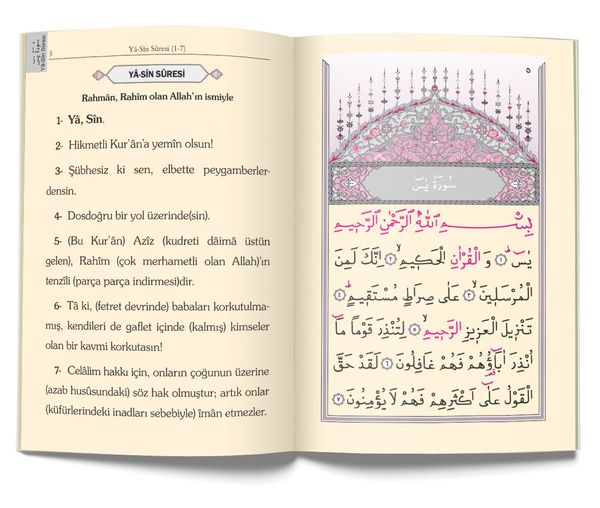 سورة يس
Yâ-Sîn Sûresi
5
Yâ-Sîn Sûresi (1-7)
YÂ-SÎN SÛRESİ
Rahmân, Rahîm olan Allah'ın ismiyle
1- Yâ, Sîn.
2- Hikmetli Kur'ân'a yemîn olsun!
3- Şübhesiz ki sen, elbette peygamberler-
densin.
4- Dosdoğru bir yol üzerinde(sin).
5- (Bu Kur'ân) Azîz (kudreti dâimâ üstün
gelen), Rahîm (çok merhametli olan) Allah'ın
tenzîli (parça parça indirmesi)dir.
6- Tâ ki, (fetret devrinde) babaları korkutulma-
mış, kendileri de gaflet içinde (kalmış) kimseler
olan bir kavmi korkutasın!
7- Celâlim hakkı için, onların çoğunun üzerine
(azab husûsundaki) söz hak olmuştur; artık onlar
(küfürlerindeki inadları sebebiyle) îmân etmezler.
٥
سُورَةُ يٰسٓ
بِسْمِ اللّٰهِ الرَّحْمٰنِ الرَّحِيمِ
يٰسٓ ﴿١﴾ وَ الْقُرْاٰنِ الْحَكِيمِ ﴿٢﴾ اِنَّكَ لَمِنَ
الْمُرْسَلِينَ ﴿٣﴾ عَلٰى صِرَاطٍ مُسْتَقِيمٍ ﴿٤﴾
تَنْزِيلَ الْعَزِيزِ الرَّحِيمِ ﴿٥﴾ لِتُنْذِرَ قَوْمًا مَٓا
اُنْذِرَ اٰبَٓاؤُ۬هُمْ فَهُمْ غَافِلُونَ ﴿٦﴾ لَقَدْ حَقَّ
الْقَوْلُ عَلٰٓى اَكْثَرِهِمْ فَهُمْ لَا يُؤْمِنُونَ ﴿٧﴾